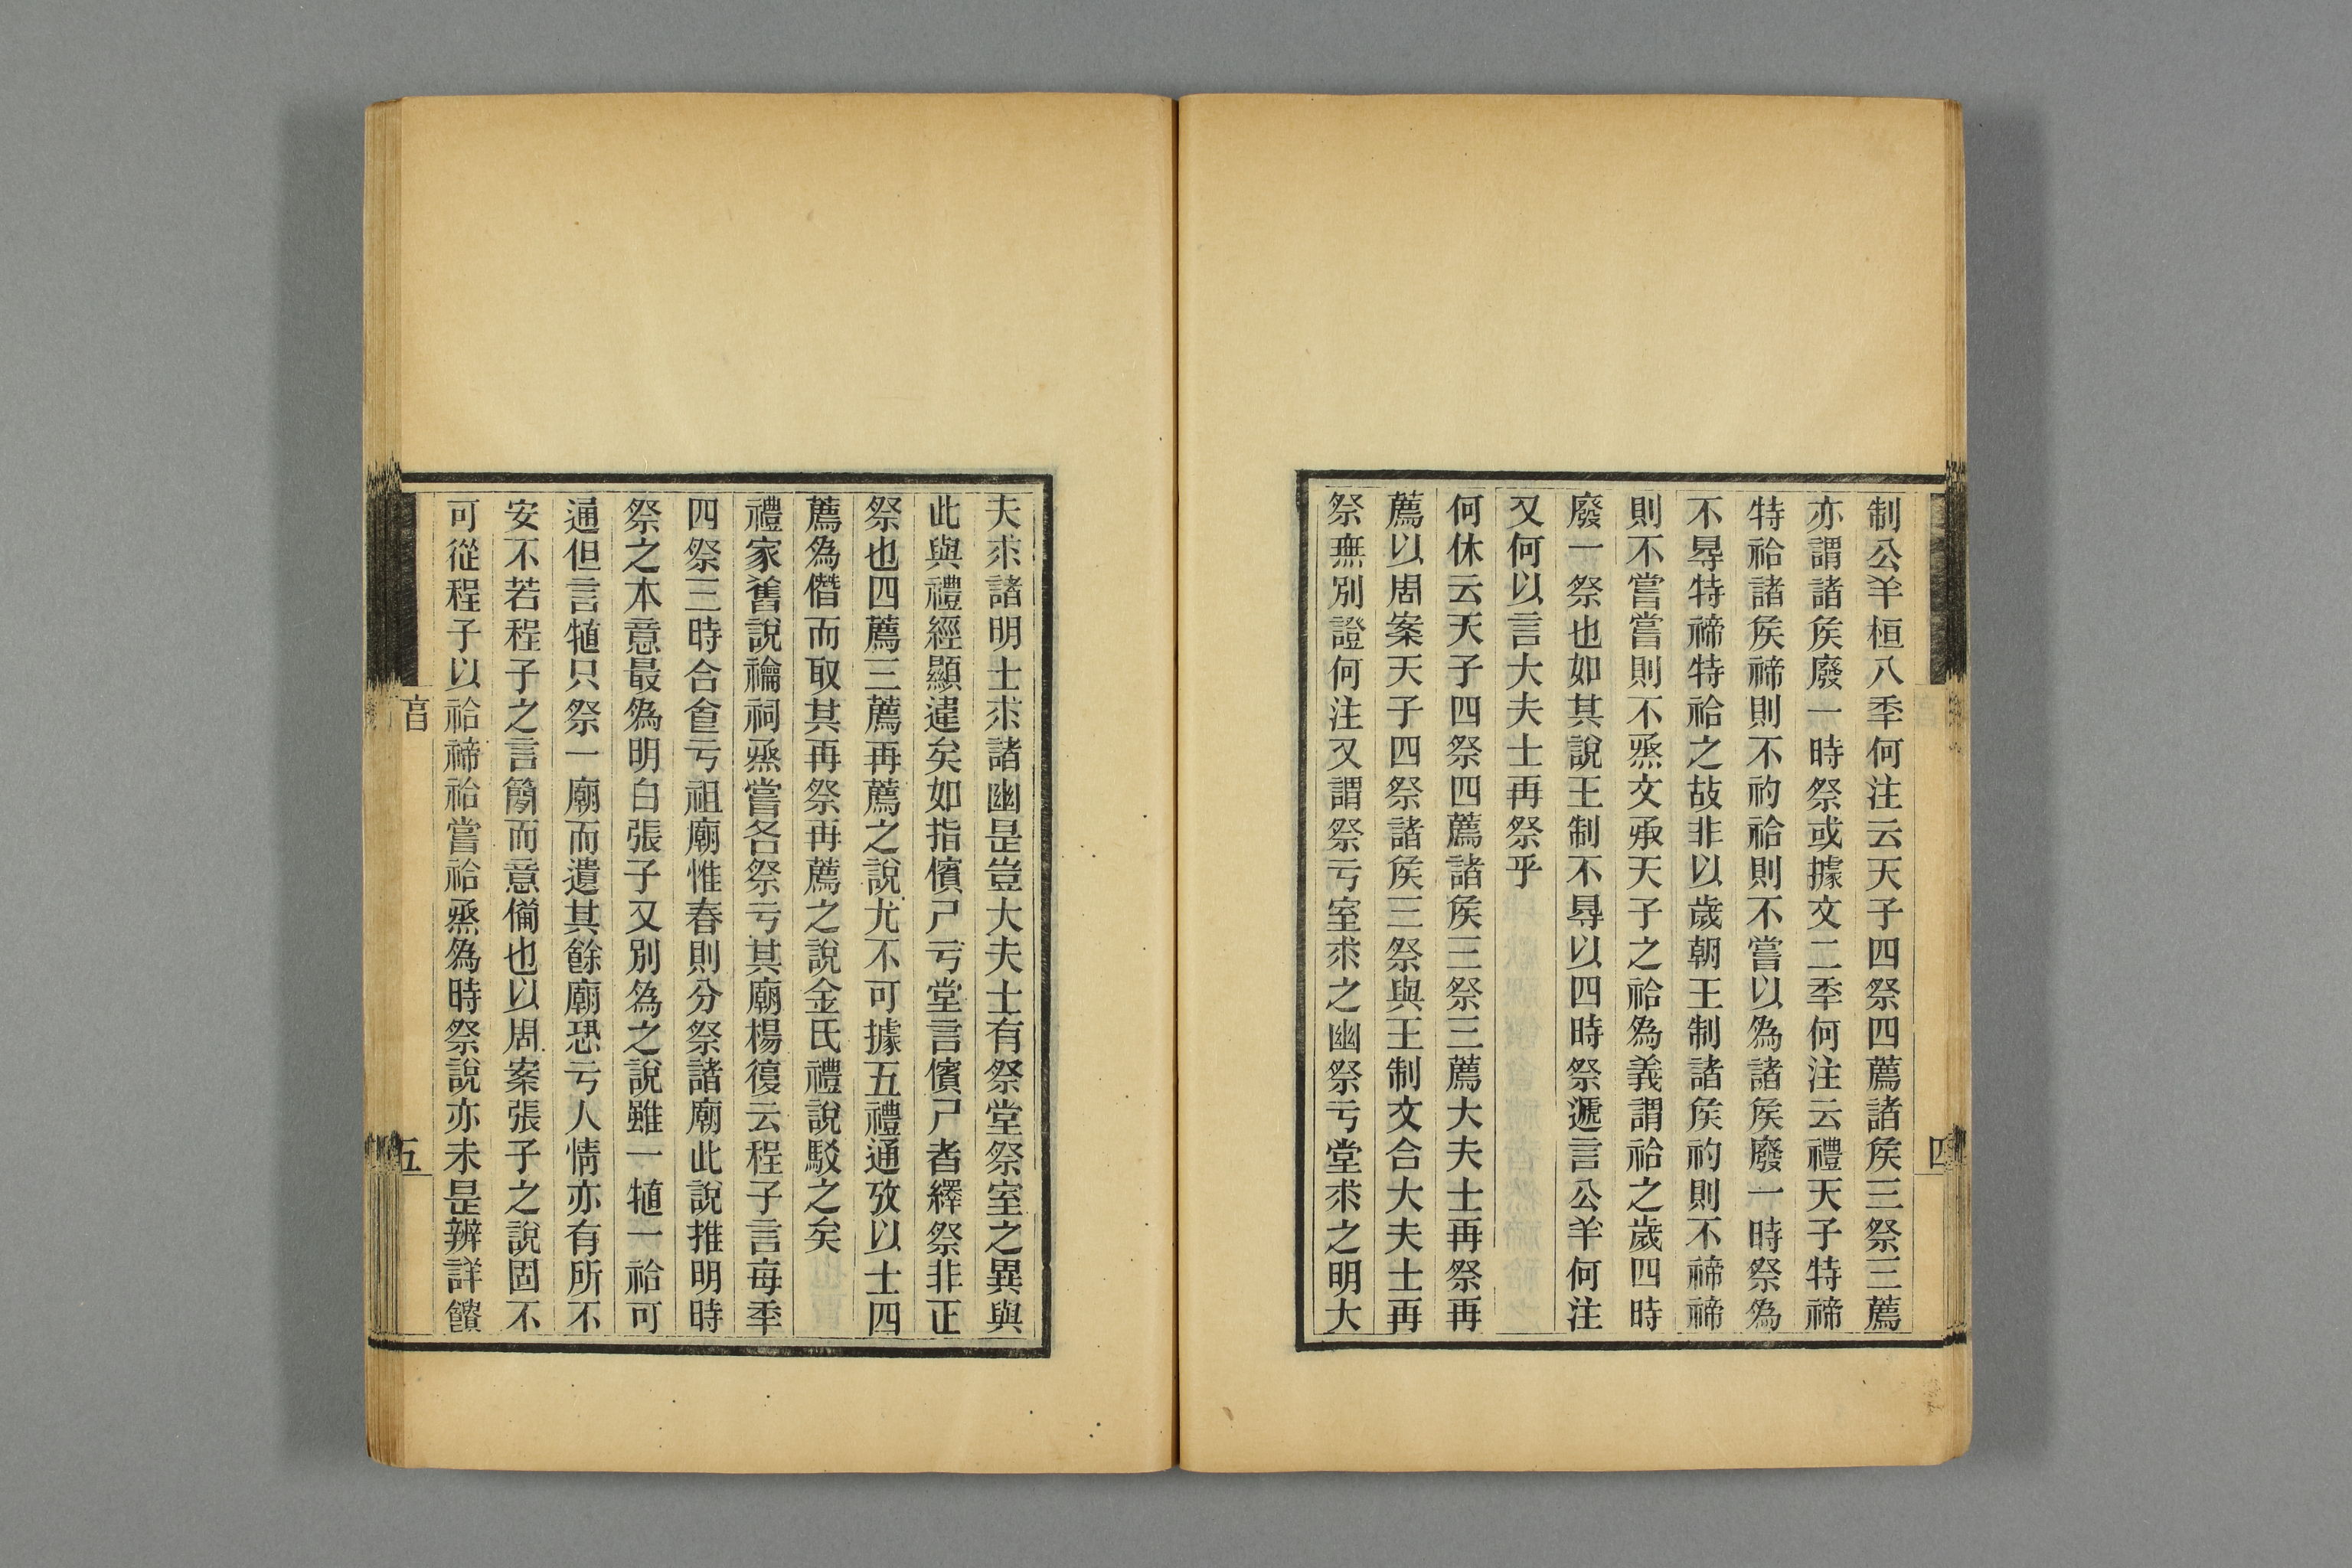 制公羊桓八秊何注云天子四祭四薦諸矦三祭三薦
亦謂諸矦廢一時祭或據文二秊何注云禮天子特禘
特祫諸矦禘則不礿祫則不嘗以為諸矦廢一時祭為
不㝵特禘特祫之故非以歲朝王制諸矦礿則不禘禘
則不嘗嘗則不烝文承天子之祫為義謂祫之歲四時
廢一祭也如其說王制不㝵以四時祭遞言公羊何注
又何以言大夫士再祭乎
何休云天子四祭四薦諸矦三祭三薦大夫士再祭再
薦以周案天子四祭諸矦三祭與王制文合大夫士再
祭無別證何注又謂祭亏室求之幽祭亏堂求之明大
夫求諸明士求諸幽是豈大夫士有祭堂祭室之異與
此與禮經顯違矣如指儐尸亏堂言儐尸者繹祭非正
祭也四薦三薦再薦之說尤不可據五禮通攷以士四
薦為僭而取其再祭再薦之說金氏禮說駁之矣
禮家舊說禴祠烝嘗各祭亏其廟楊復云程子言每秊
四祭三時合㑹亏祖廟惟春則分祭諸廟此說推明時
祭之本意最為明白張子又別為之說雖一犆一祫可
通但言犆只祭一廟而遺其餘廟恐亏人情亦有所不
安不若程子之言簡而意僃也以周案張子之說固不
可從程子以祫禘祫嘗祫烝為時祭說亦未是辨詳饋
四
五